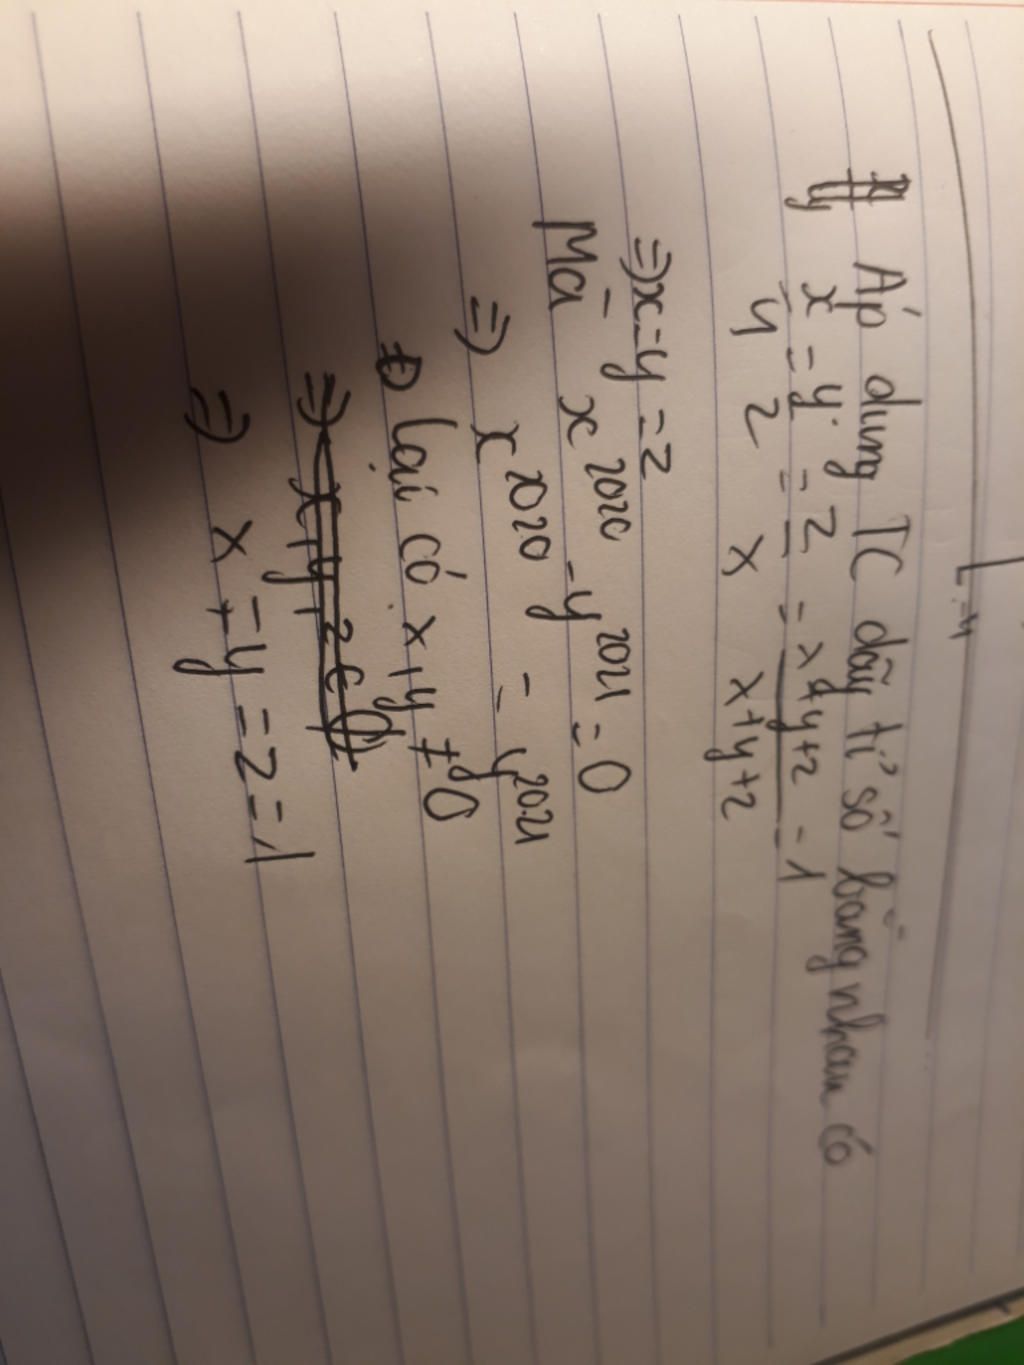 Áp dụng TC dãy tỉ số bằng nhau có
x/y = y/z = z/x = x+y+z/x+y+z = 1
=> x=y=z
Mà x^2020 - y^2021 = 0
=> x^2020 = y^2021
lại có x, y ≠ 0
=> x = y = z = 1